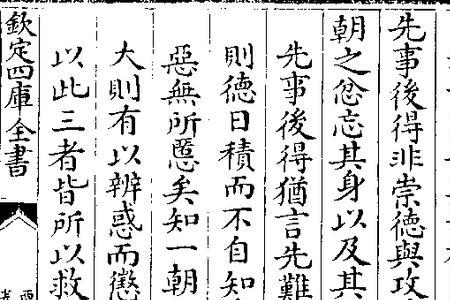 先事後得非崇德與攻
朝之忿忘其身以及其
先事後得猶言先難
則德日積而不自知
惡無所匿矣知一朝
大則有以辨惑而懲
以此三者皆所以救
欽定四庫全書